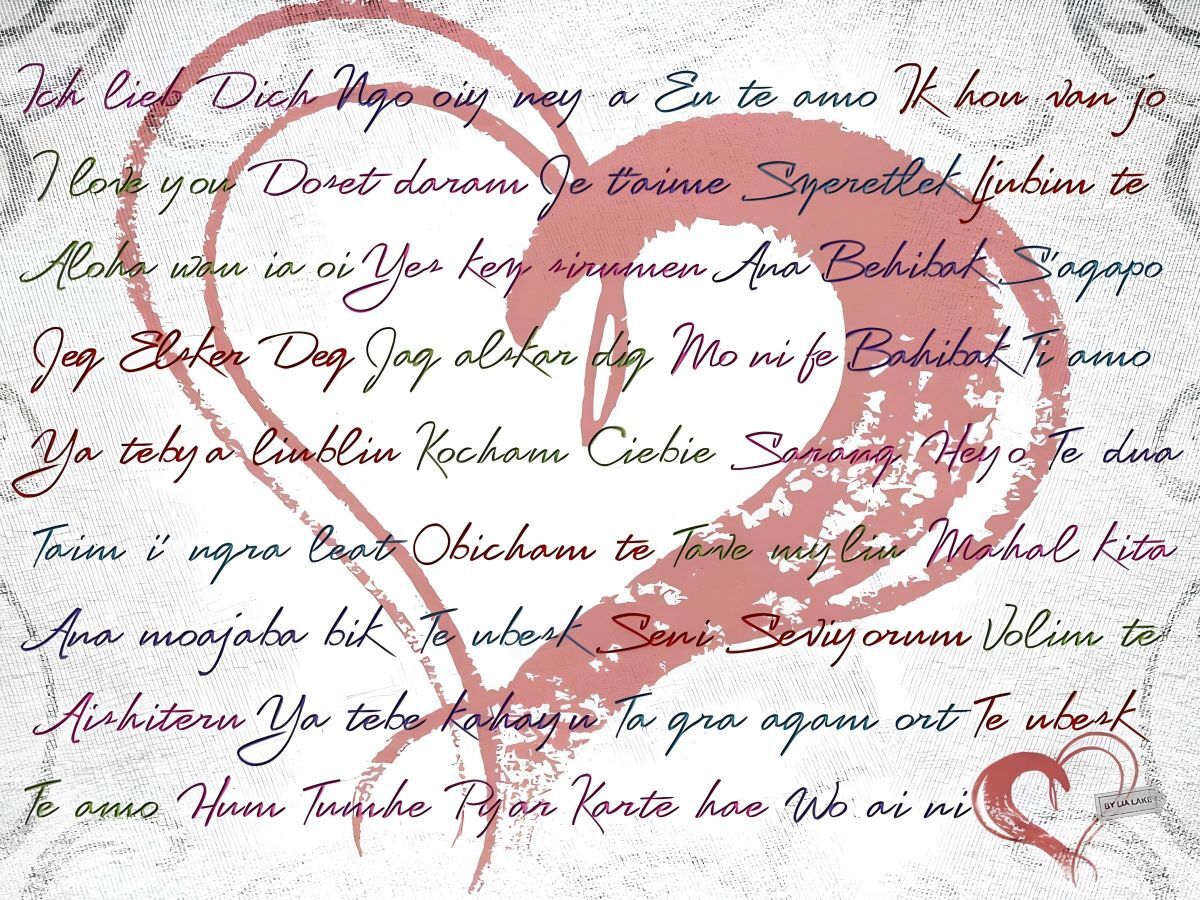 Ich lieb Dich Ngo oiy ney a Eu te amo Ik hou van jo
I love you Doset daram Je t'aime Szeretlek ljubim te
Aloha wau ia oi Yes kez sirumen Ana Behibak S'agapo
Jeg Elsker Deg Jag alskar dig Mo ni fe Bahibak Ti amo
Ya tebya liubliu Kocham Ciebie Sarang Heyo Te dua
Taim i' ngra leat Obicham te Tave myliu Mahal kita
Ana moajaba bik Te ubesk Seni Seviyorum Volim te
Aishiteru Ya tebe kahayu Ta gra agam ort Te ubesk
Te amo Hum Tumhe Pyar Karte hae Wo ai ni
BY LIA LAKE